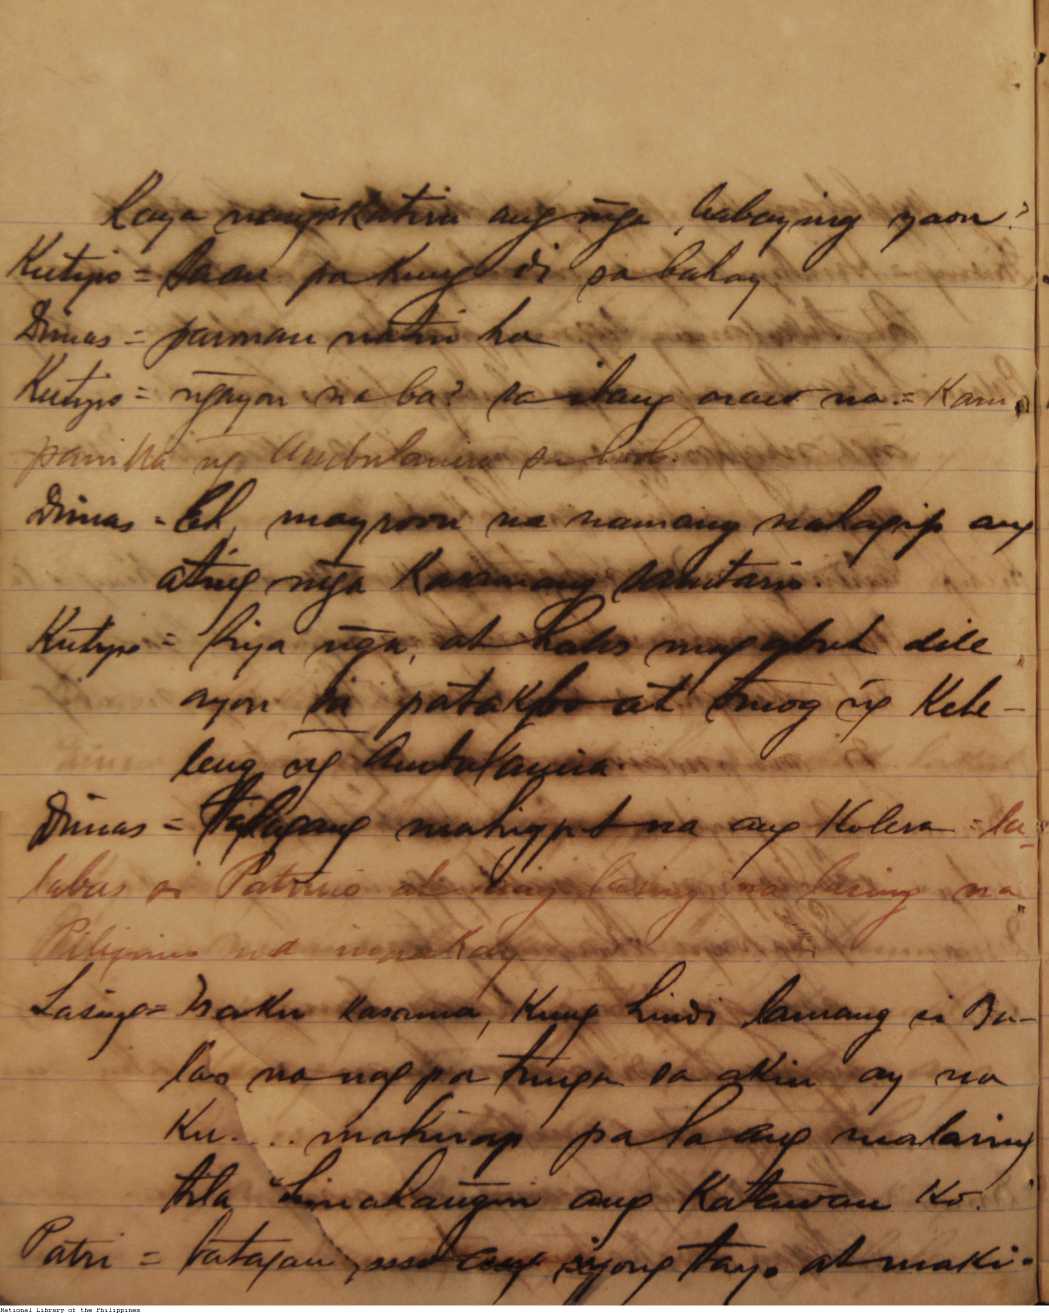 Kaya nangakatira ang m̃ga babaying yaon?
Kutyo = Saan pa kung di sa bahay
Dimas = parman natin ha
Kutyo = ng̃ayon na ba? sa ibang araw na. = Kam-
panilla ng̃ Ambulancia sa loob.
Dimas = Eh, mayroon na namang nahagip ang
ating m̃ga kaawang sanitario.
Kutyo = Siya ng̃a, at halos dile
ayon sa patakbo at tunog ng̃ Kele-
leng ng̃ Ambulancia.
Dimas = Talagang mahigpit na ang Kolera = la-
labas si Patricio at ang lasing na lasing na
Pilipino na
Lasing = Naku kasama, Kung hindi lamang si Bu-
las na nag pa tunga sa akin ay na
Ku.... mahirap pala ang malasing
tila hinahang̃in ang Katawan Ko.
Patri = batayan, ang iyong tayo at maki-
National Library of the Philippines